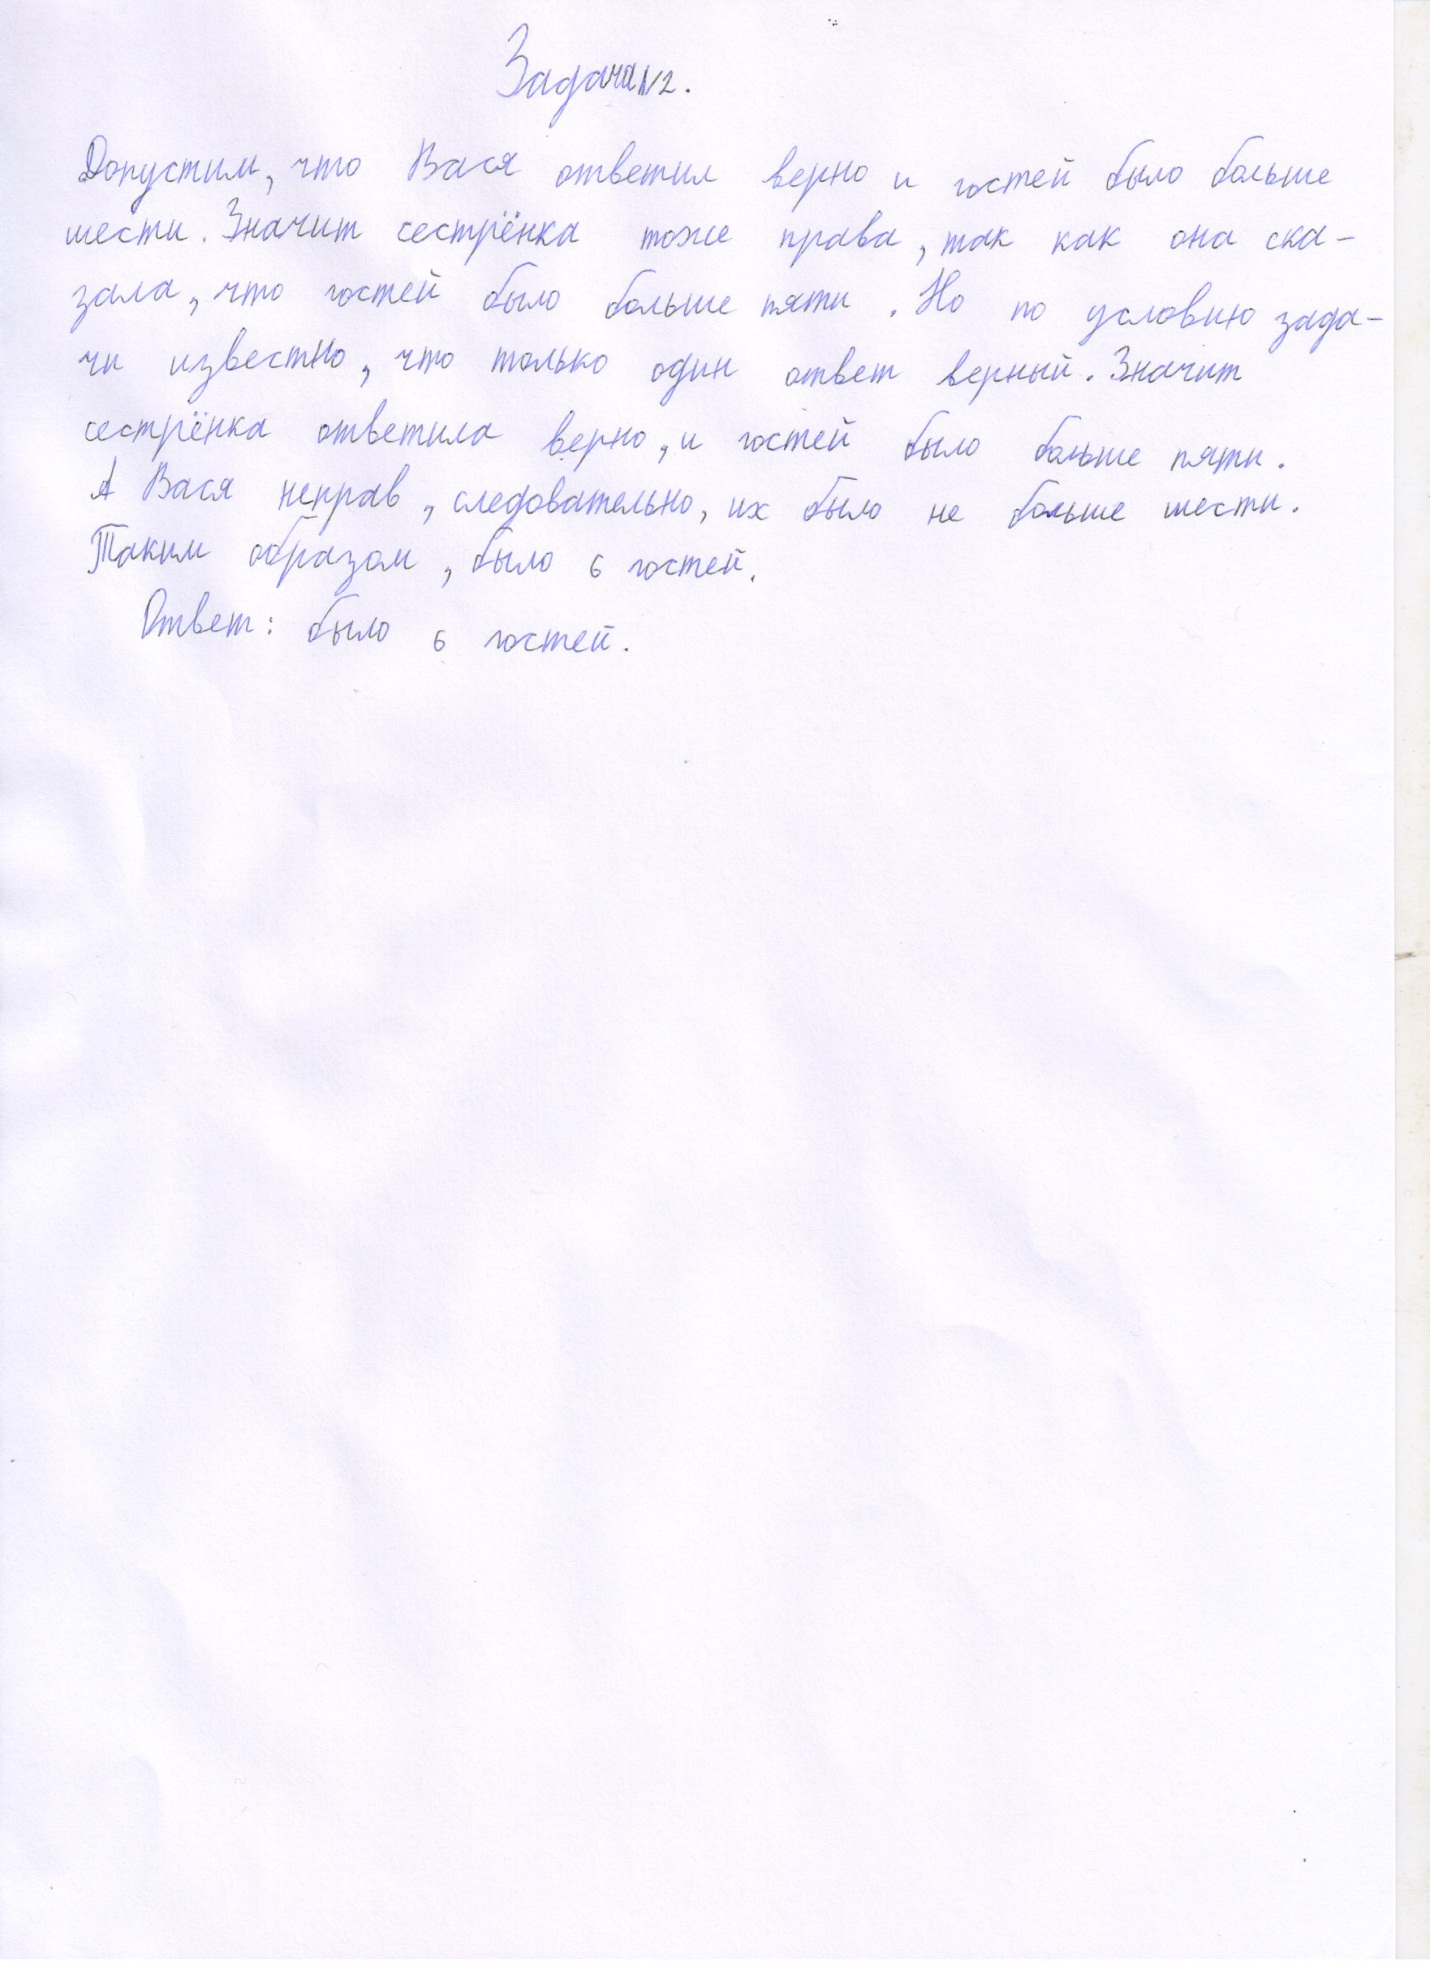 Задача №2.
Допустим, что Вася ответил верно и гостей было больше
шести. Значит сестрёнка тоже права, так как она ска-
зала, что гостей было больше пяти. Но по условию зада-
чи известно, что только один ответ верный. Значит
сестрёнка ответила верно, и гостей было больше пяти.
А Вася неправ, следовательно, их было не больше шести.
Таким образом, было 6 гостей.
Ответ: было 6 гостей.